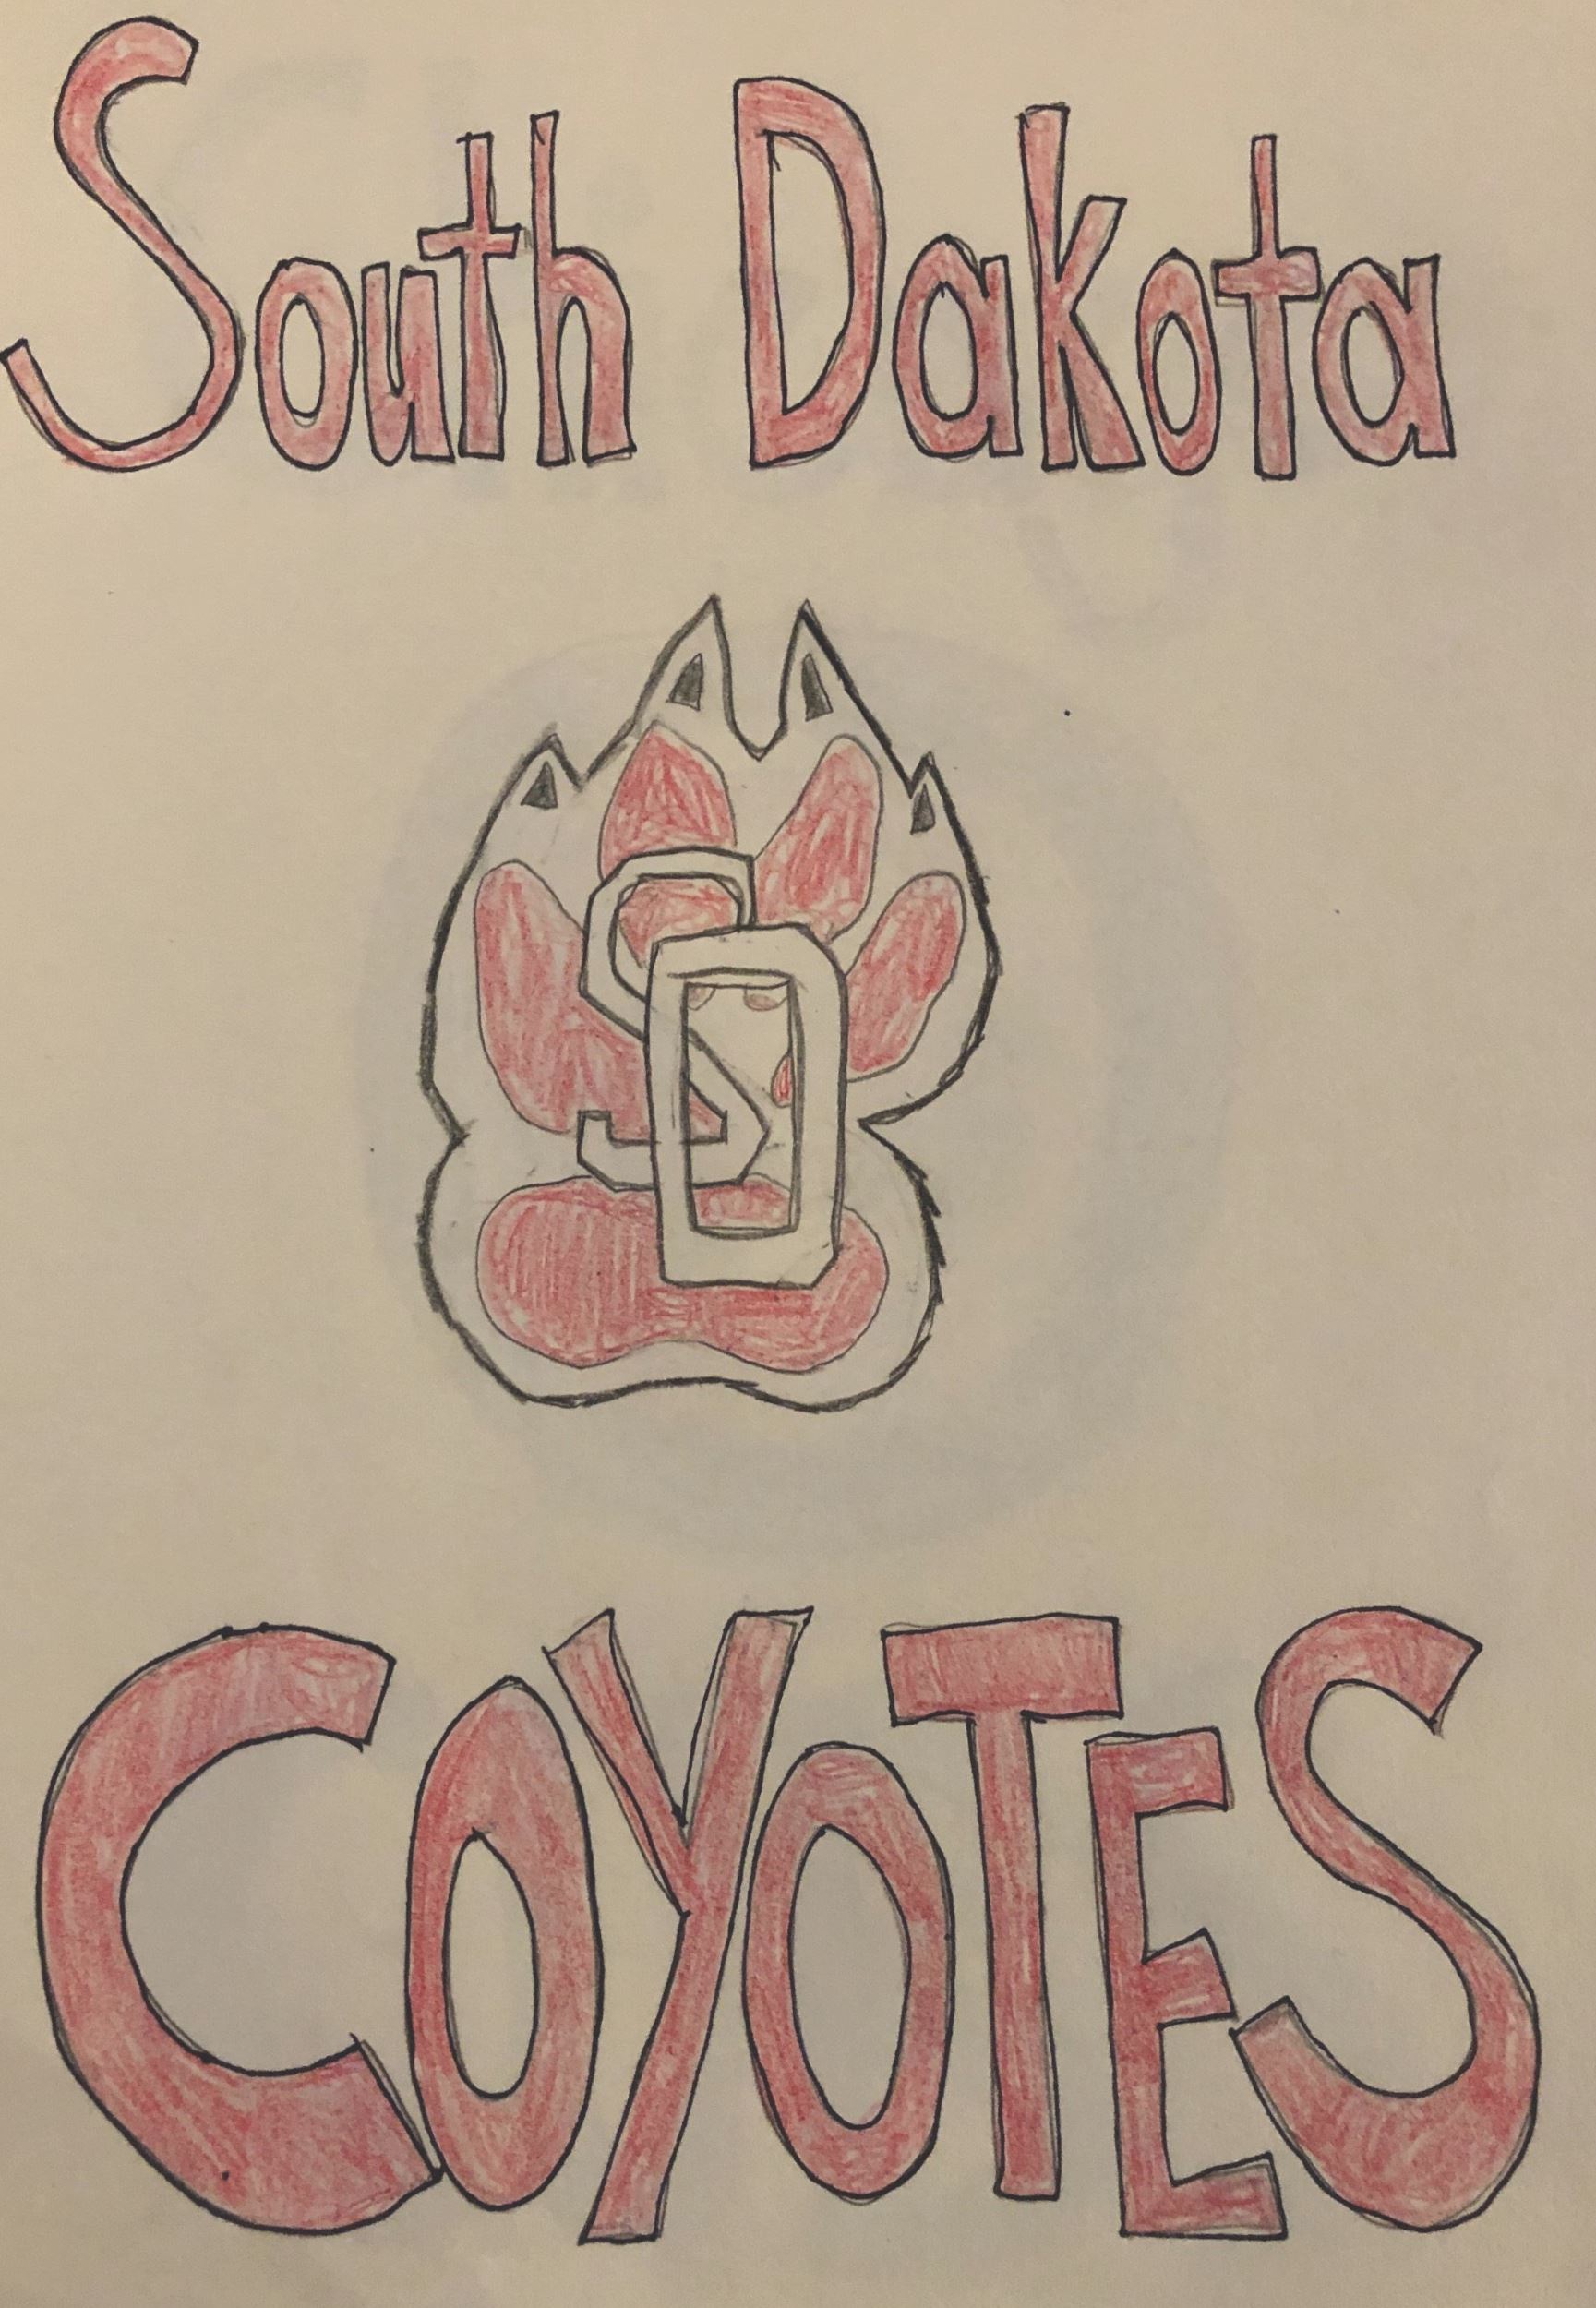 South Dakota
SD
COYOTES